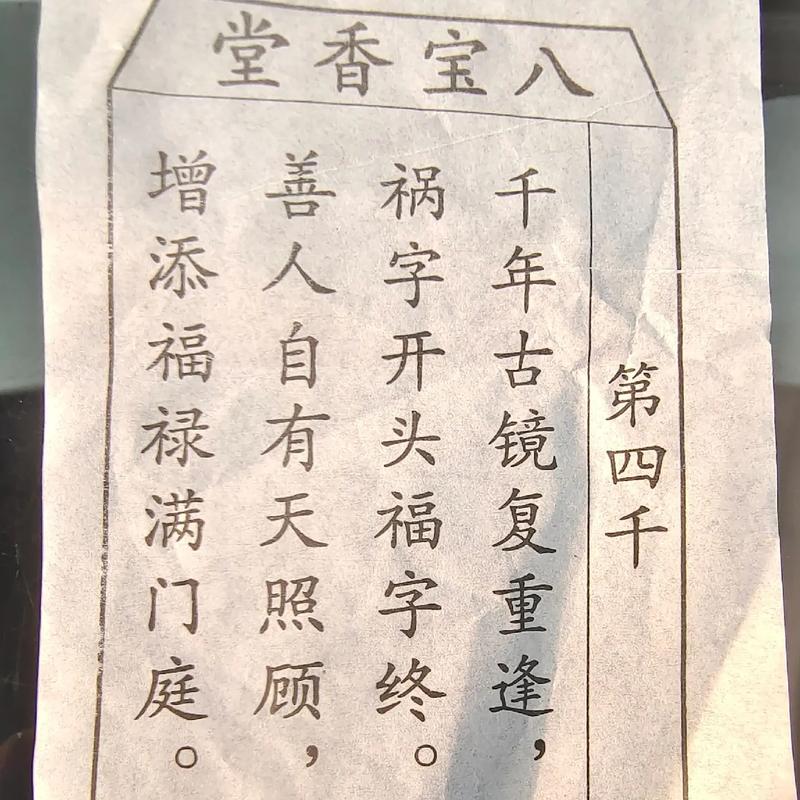 八宝香堂
第四千
千年古镜复重逢，
祸字开头福字终。
善人自有天照顾，
增添福禄满门庭。